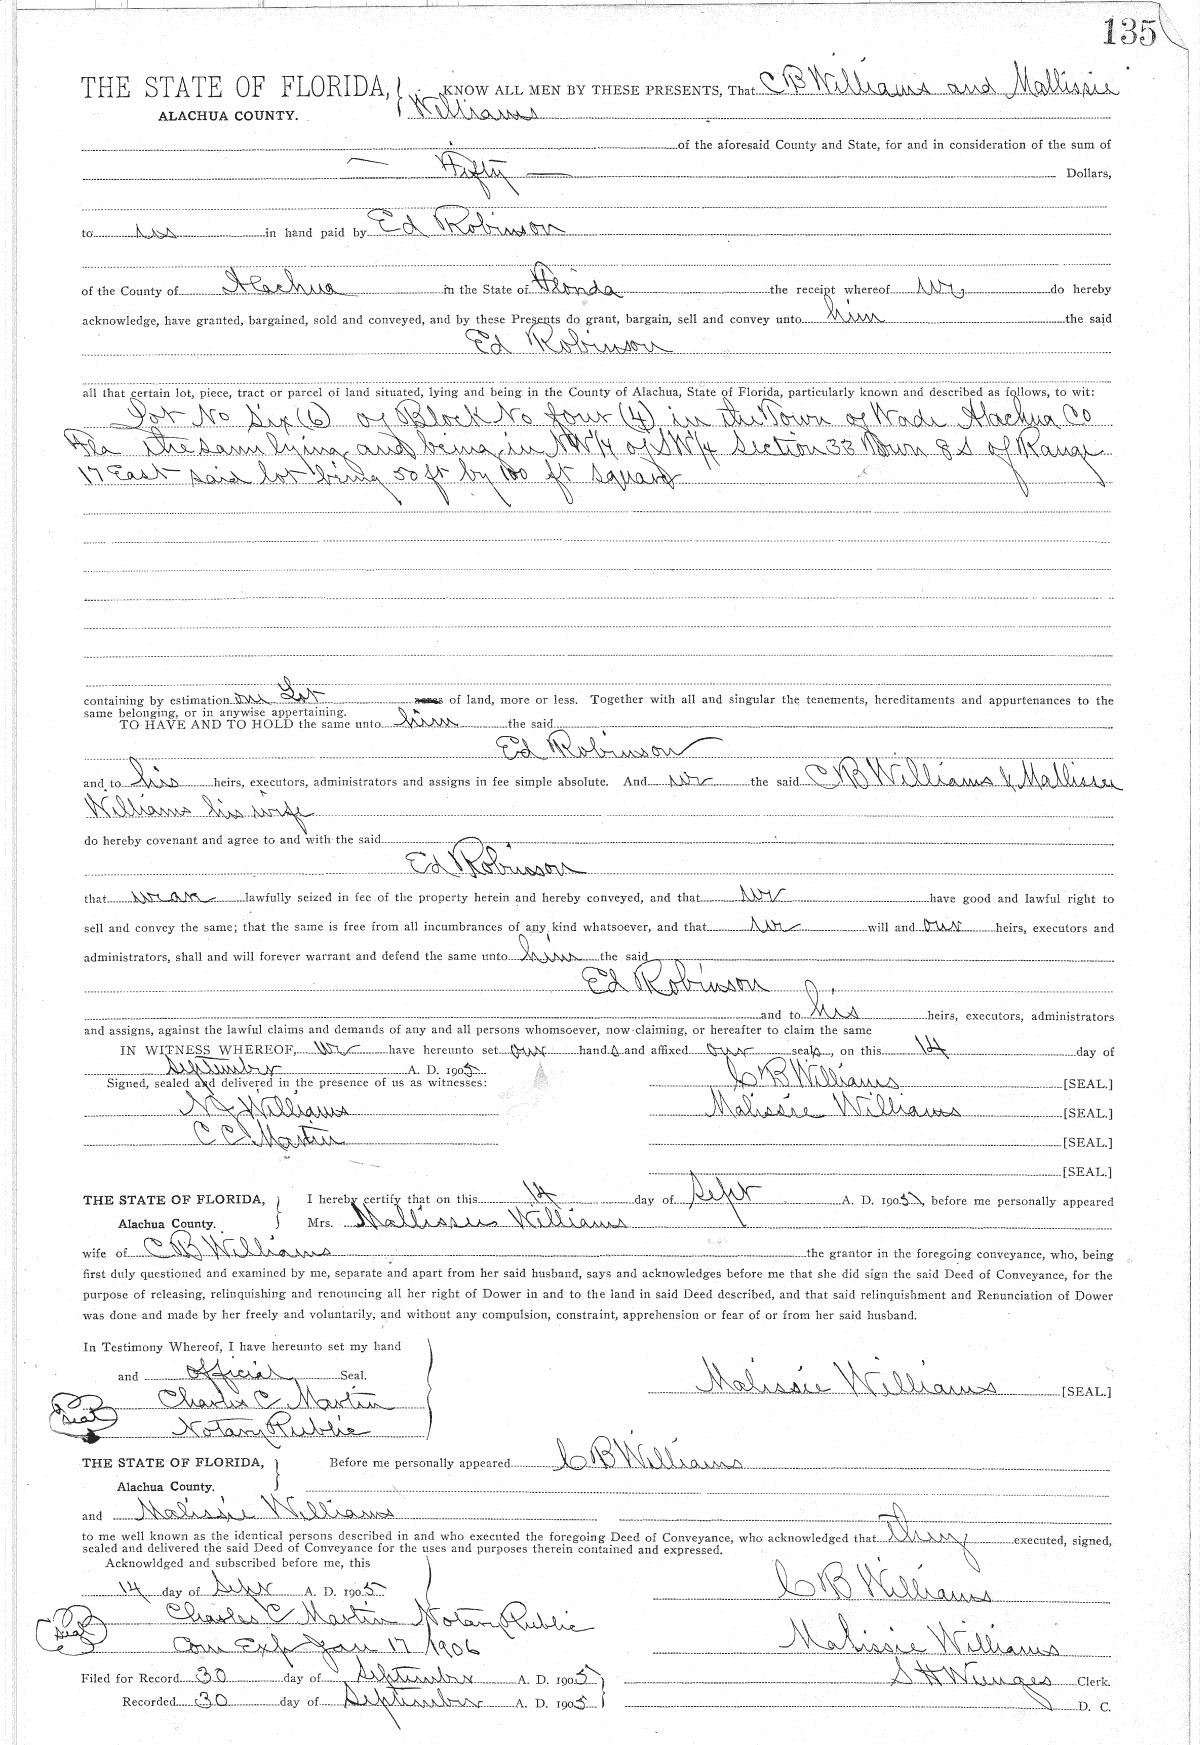 135
THE STATE OF FLORIDA, KNOW ALL MEN BY THESE PRESENTS, That C B Williams and Mallissie
ALACHUA COUNTY. Williams
of the aforesaid County and State, for and in consideration of the sum of
Fifty Dollars,
to us in hand paid by Ed Robinson
of the County of Alachua in the State of Florida the receipt whereof we do hereby
acknowledge, have granted, bargained, sold and conveyed, and by these Presents do grant, bargain, sell and convey unto him the said
Ed Robinson
all that certain lot, piece, tract or parcel of land situated, lying and being in the County of Alachua, State of Florida, particularly known and described as follows, to wit:
Lot No Six (6) of Block No four (4) in the Town of Wade Alachua Co
Fla the same lying and being in NW/4 of SW/4 Section 33 Town 8 S of Range
17 East said lot being 50 ft by 100 ft square
containing by estimation one Lot acres of land, more or less. Together with all and singular the tenements, hereditaments and appurtenances to the
same belonging, or in anywise appertaining.
TO HAVE AND TO HOLD the same unto him the said
Ed Robinson
and to his heirs, executors, administrators and assigns in fee simple absolute. And we the said C B Williams & Mallissie
Williams his wife
do hereby covenant and agree to and with the said
Ed Robinson
that we are lawfully seized in fee of the property herein and hereby conveyed, and that we have good and lawful right to
sell and convey the same; that the same is free from all incumbrances of any kind whatsoever, and that we will and our heirs, executors and
administrators, shall and will forever warrant and defend the same unto him the said
Ed Robinson
and to his heirs, executors, administrators
and assigns, against the lawful claims and demands of any and all persons whomsoever, now claiming, or hereafter to claim the same
IN WITNESS WHEREOF, we have hereunto set our hand s and affixed our seal s, on this 14 day of
September A. D. 1905
Signed, sealed and delivered in the presence of us as witnesses: C B Williams [SEAL.]
N J Williams Malissie Williams [SEAL.]
C C Martin [SEAL.]
[SEAL.]
THE STATE OF FLORIDA, I hereby certify that on this 14 day of Sept A. D. 1905, before me personally appeared
Alachua County. Mrs. Mallissie Williams
wife of C B Williams the grantor in the foregoing conveyance, who, being
first duly questioned and examined by me, separate and apart from her said husband, says and acknowledges before me that she did sign the said Deed of Conveyance, for the
purpose of releasing, relinquishing and renouncing all her right of Dower in and to the land in said Deed described, and that said relinquishment and Renunciation of Dower
was done and made by her freely and voluntarily, and without any compulsion, constraint, apprehension or fear of or from her said husband.
In Testimony Whereof, I have hereunto set my hand
and official Seal. Malissie Williams [SEAL.]
Charles C Martin
Seal Notary Public
THE STATE OF FLORIDA, Before me personally appeared C B Williams
Alachua County.
and Malissie Williams
to me well known as the identical persons described in and who executed the foregoing Deed of Conveyance, who acknowledged that they executed, signed,
sealed and delivered the said Deed of Conveyance for the uses and purposes therein contained and expressed.
Acknowldged and subscribed before me, this
14 day of Sept A. D. 1905 C B Williams
Seal Charles C Martin Notary Public
Com Exp Jan 17 1906 Malissie Williams
Filed for Record 30 day of September A. D. 1905 S H Wienges Clerk.
Recorded 30 day of September A. D. 1905 D. C.